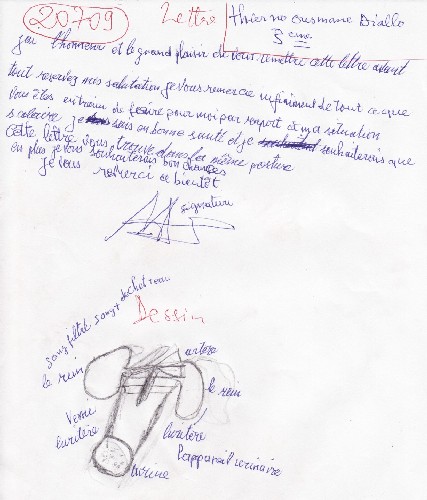 20709 Lettre / thierno ousmane Diallo
3eme
j'ai l'honneur et le grand plaisir de vous remettre cette lettre avant
tout recevez mes salutation je vous remercie infiniment de tout ce que
Vous êtes entraim de faire pour moi par raport à ma situation
scolaire je suis en bonne santé et je souhaiterais que
Cette lettre vous trouve dans la même posture
en plus je vous souhaiterais bon chances
je vous remerci a bientôt
signature
Dessin
sang filtré sang + dechet
le rein
artère
le rein
Vessie
l'uritère
l'uritère
l'appareil urinaire
l'urine